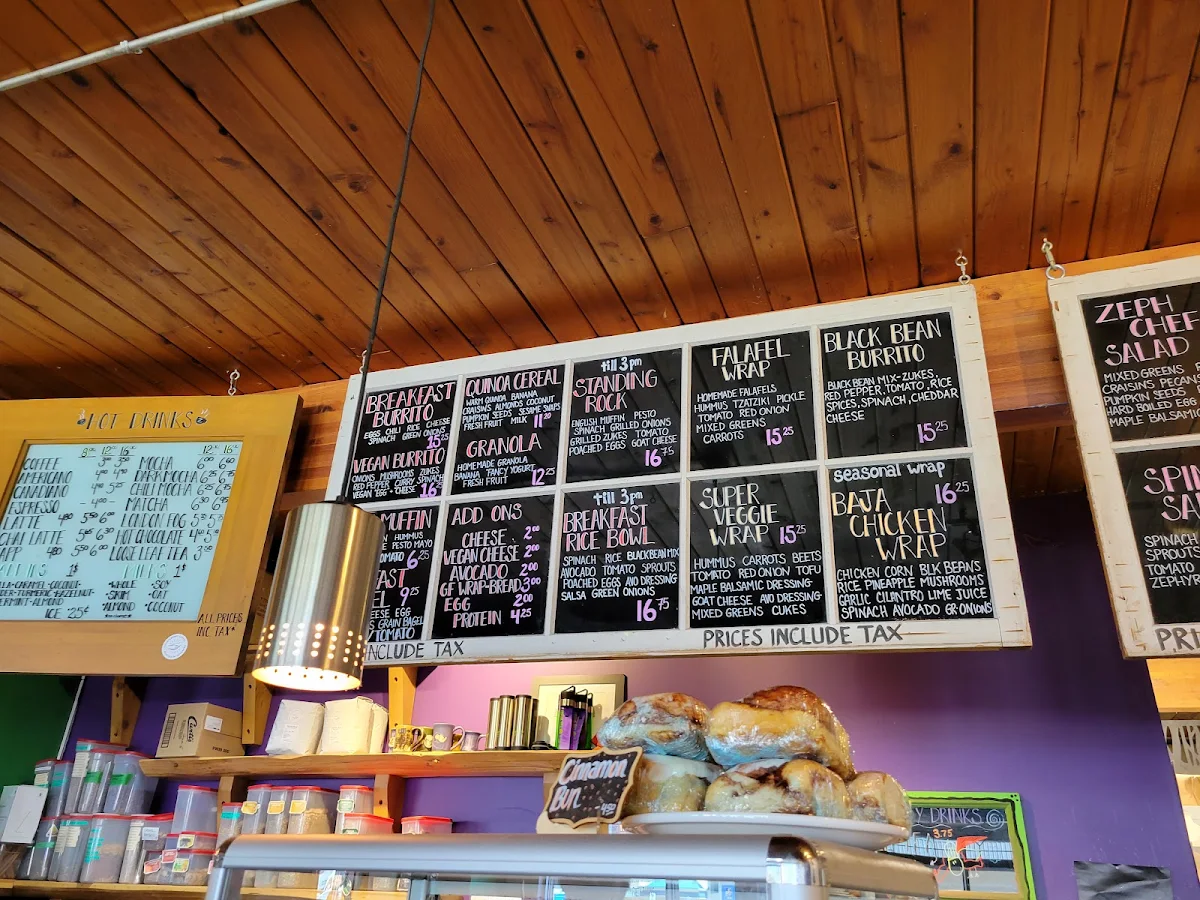 HOT DRINKS
COFFEE
AMERICANO
CANADIANO
ESPRESSO
LATTE
CHAI LATTE
MOCHA
DARK MOCHA
CHILI MOCHA
MATCHA
LONDON FOG
HOT CHOCOLATE
LOOSE LEAF TEA
1$
1$
-WHOLE -SOY
-SKIM -OAT
-ALMOND -COCONUT
ICE .25¢
ALL PRICES
INC. TAX*
BREAKFAST
BURRITO
EGGS CHILI RICE CHEESE
SPINACH GREEN ONIONS
15.25
VEGAN BURRITO
ONIONS MUSHROOMS ZUKES
RED PEPPER CURRY SPINACH
VEGAN EGG + CHEESE 16
QUINOA CEREAL
WARM QUINOA BANANA
CRAISINS ALMONDS COCONUT
PUMPKIN SEEDS SESAME SNAPS
FRESH FRUIT MILK
GRANOLA
HOMEMADE GRANOLA
BANANA FANCY YOGURT
FRESH FRUIT 12.25
till 3pm
STANDING
ROCK
ENGLISH MUFFIN PESTO
SPINACH GRILLED ONIONS
GRILLED ZUKES TOMATO
POACHED EGGS GOAT CHEESE
16.75
FALAFEL
WRAP
HOMEMADE FALAFELS
HUMMUS TZATZIKI PICKLE
TOMATO RED ONION
MIXED GREENS
CARROTS 15.25
BLACK BEAN
BURRITO
BLACK BEAN MIX-ZUKES,
RED PEPPER, TOMATO, RICE
SPICES, SPINACH, CHEDDAR
CHEESE
15.25
MUFFIN
HUMMUS
PESTO MAYO
TOMATO 6.25
9.25
CHEESE EGG
GRAIN BAGEL
TOMATO
ADD ONS
CHEESE 2.00
VEGAN CHEESE 2.00
AVOCADO 2.00
GF WRAP-BREAD 3.00
EGG 2.00
PROTEIN 4.25
till 3pm
BREAKFAST
RICE BOWL
SPINACH RICE BLACKBEAN MIX
AVOCADO TOMATO SPROUTS
POACHED EGGS AVO DRESSING
SALSA GREEN ONIONS
16.75
SUPER
VEGGIE
WRAP 15.25
HUMMUS CARROTS BEETS
TOMATO RED ONION TOFU
MAPLE BALSAMIC DRESSING-
GOAT CHEESE AVO DRESSING-
MIXED GREENS CUKES
seasonal wrap
16.25
BAJA
CHICKEN
WRAP
CHICKEN CORN BLK BEANS
RICE PINEAPPLE MUSHROOMS
GARLIC CILANTRO LIME JUICE
SPINACH AVOCADO GR·ONIONS
INCLUDE TAX
PRICES INCLUDE TAX
ZEPH
CHEF
SALAD
MIXED GREENS
CRAISINS PECANS
PUMPKIN SEEDS
HARD BOILED EGG
MAPLE BALSAM
SPIN
SA
SPINACH
SPROUTS
TOMATO
ZEPHYR
Cinnamon
Bun
4.50
Y DRINKS
3.75